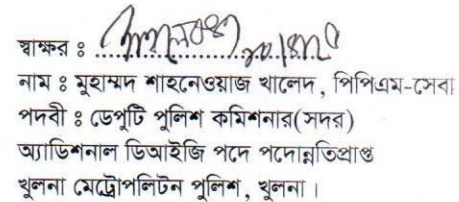 স্বাক্ষর ঃ
নাম ঃ মুহাম্মদ শাহনেওয়াজ খালেদ, পিপিএম-সেবা
পদবী ঃ ডেপুটি পুলিশ কমিশনার(সদর)
অ্যাডিশনাল ডিআইজি পদে পদোন্নতিপ্রাপ্ত
খুলনা মেট্রোপলিটন পুলিশ, খুলনা।